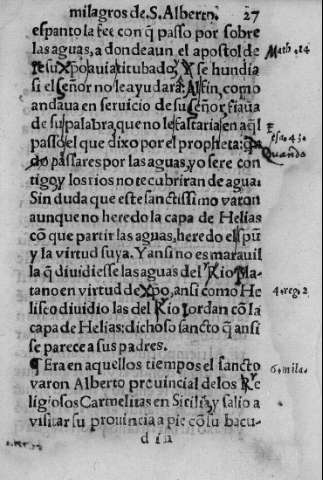 milagros de. S. Alberto, 27
espanto la fee con q̃ passo por sobre
las aguas, a donde aun el apostol de
Jesu Xp̃o auia titubado, y se hundia
si el señor no le ayudara: Al fin, como
andaua en seruicio de su Señor, fiaua
de su palabra, que no le faltaria en aq̃l
passo, el que dixo por el propheta: q̃n
do passares por las aguas, yo sere con
tigo, y los rios no te cubriran de agua.
Sin duda que este sanctissimo varon
aunque no heredo la capa de Helias
cõ que partir las aguas, heredo el spũ
y la virtud suya. Y ansi no es marauil
la q̃ diuidiesse las aguas del Rio Ma-
tano en virtud de Xp̃o, ansi como He
liseo diuidio las del Rio Iordan cõ la
capa de Helias: dichoso sancto q̃ ansi
se parece a sus padres.
¶ Era en aquellos tiempos el sancto
varon Alberto prouincial de los Re
ligiosos Carmelitas en Sicilia, y salio a
visitar su prouincia a pie cõ su bacu-
d iii
Math. 14
Esa. 43.
Quando
4. reg. 2
6. mila.